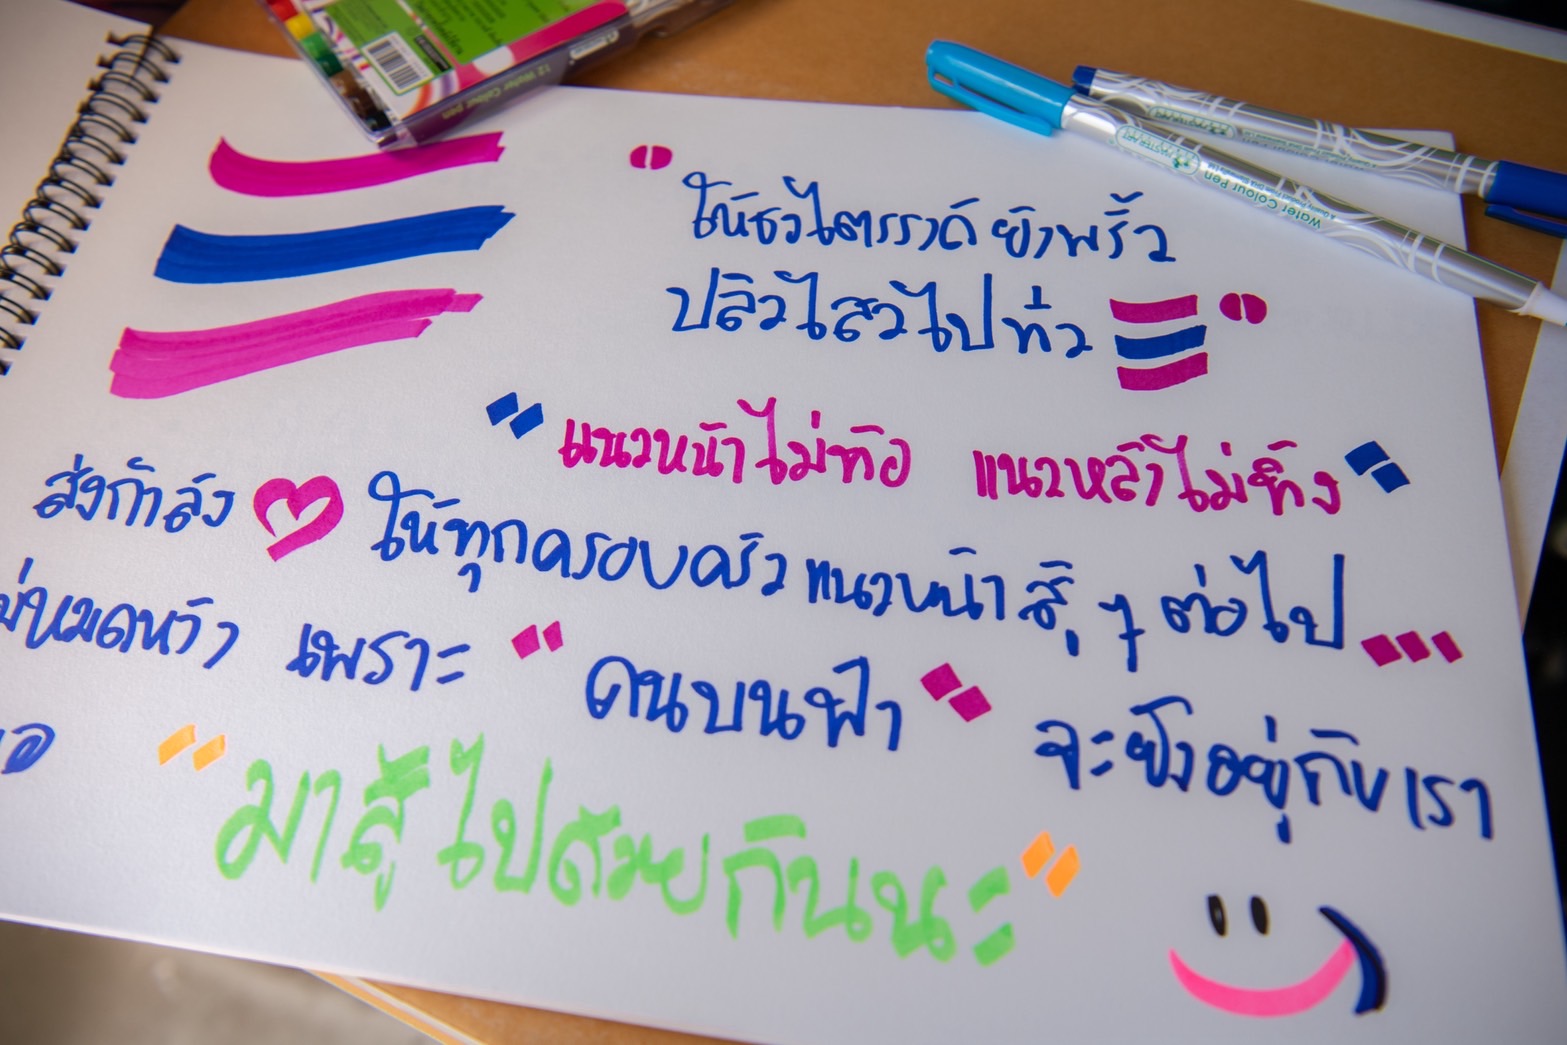 12 Water Colour Pen
Water Colour Pen
"ให้ธงไตรรงค์ยังพริ้ว
ปลิวไสวไปทั่ว"
"แนวหน้าไม่ท้อ แนวหลังไม่ทิ้ง"
ส่งกำลัง ให้ทุกครอบครัวแนวหน้าสู้ ๆ ต่อไป...
เพราะ "คนบนฟ้า" จะยังอยู่กับเรา
"มาสู้ไปด้วยกันนะ"